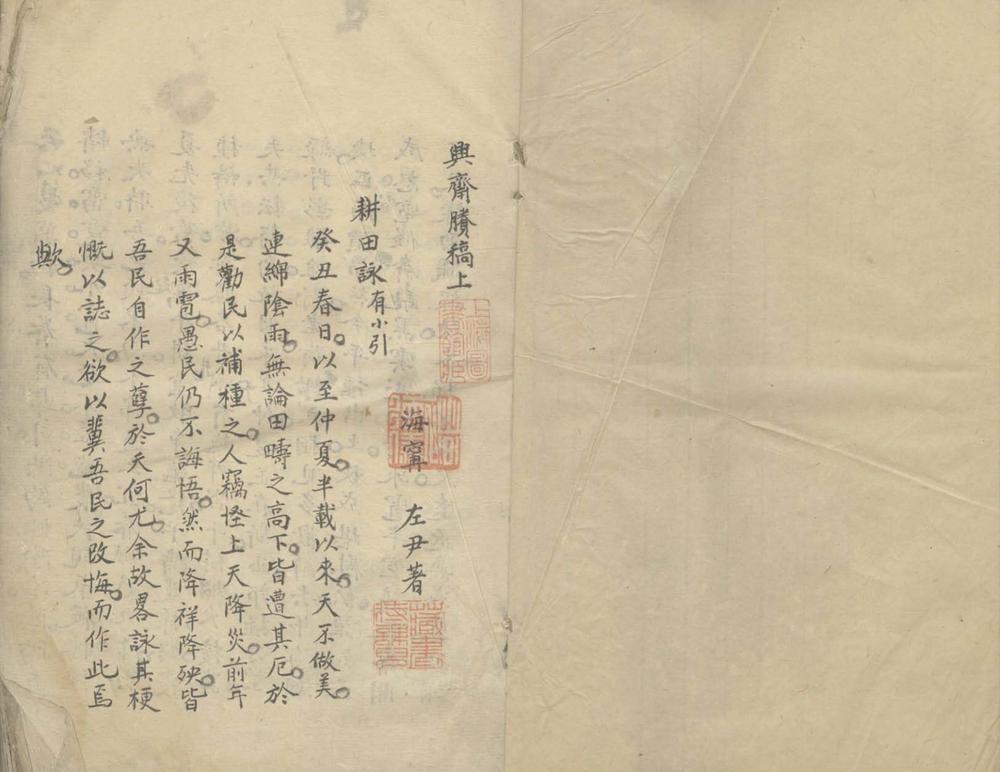 興齋賸稿上
海寧 左尹著
耕田詠有小引
癸丑春日。以至仲夏。半載以來。天不做美。
連綿陰雨。無論田疇之高下。皆遭其厄。於
是勸民以補種之。人竊怪上天降災。前年
又雨雹。愚民仍不誨悟。然而降祥降殃。皆
吾民自作之孽。於天何尤。余故畧詠其梗
慨以誌之。欲以冀吾民之改悔。而作此焉
歟。
上海圖
藏書